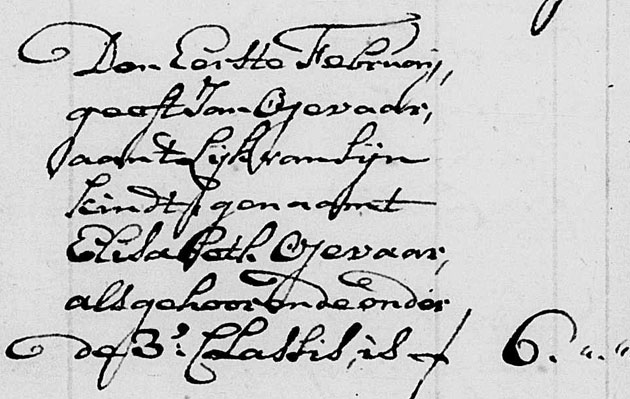 Den Eerste Februarij,
geeft Jan Gevaar,
aan't Lijk van sijn
kindt, genaamt
Elisabeth Gevaar,
als gehoorende onder
de 3e. Classis, is f 6. „. „